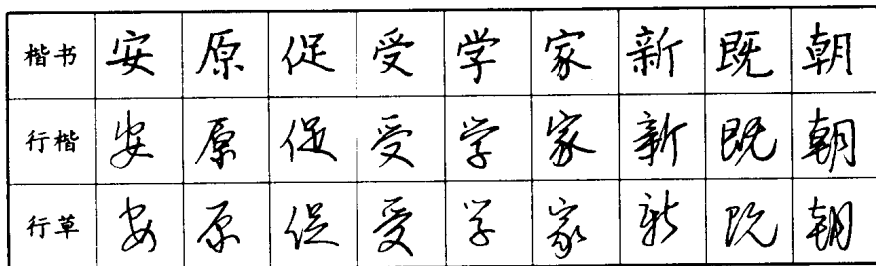 楷书 安 原 促 受 学 家 新 既 朝
行楷 安 原 促 受 学 家 新 既 朝
行草 安 原 促 受 学 家 新 既 朝